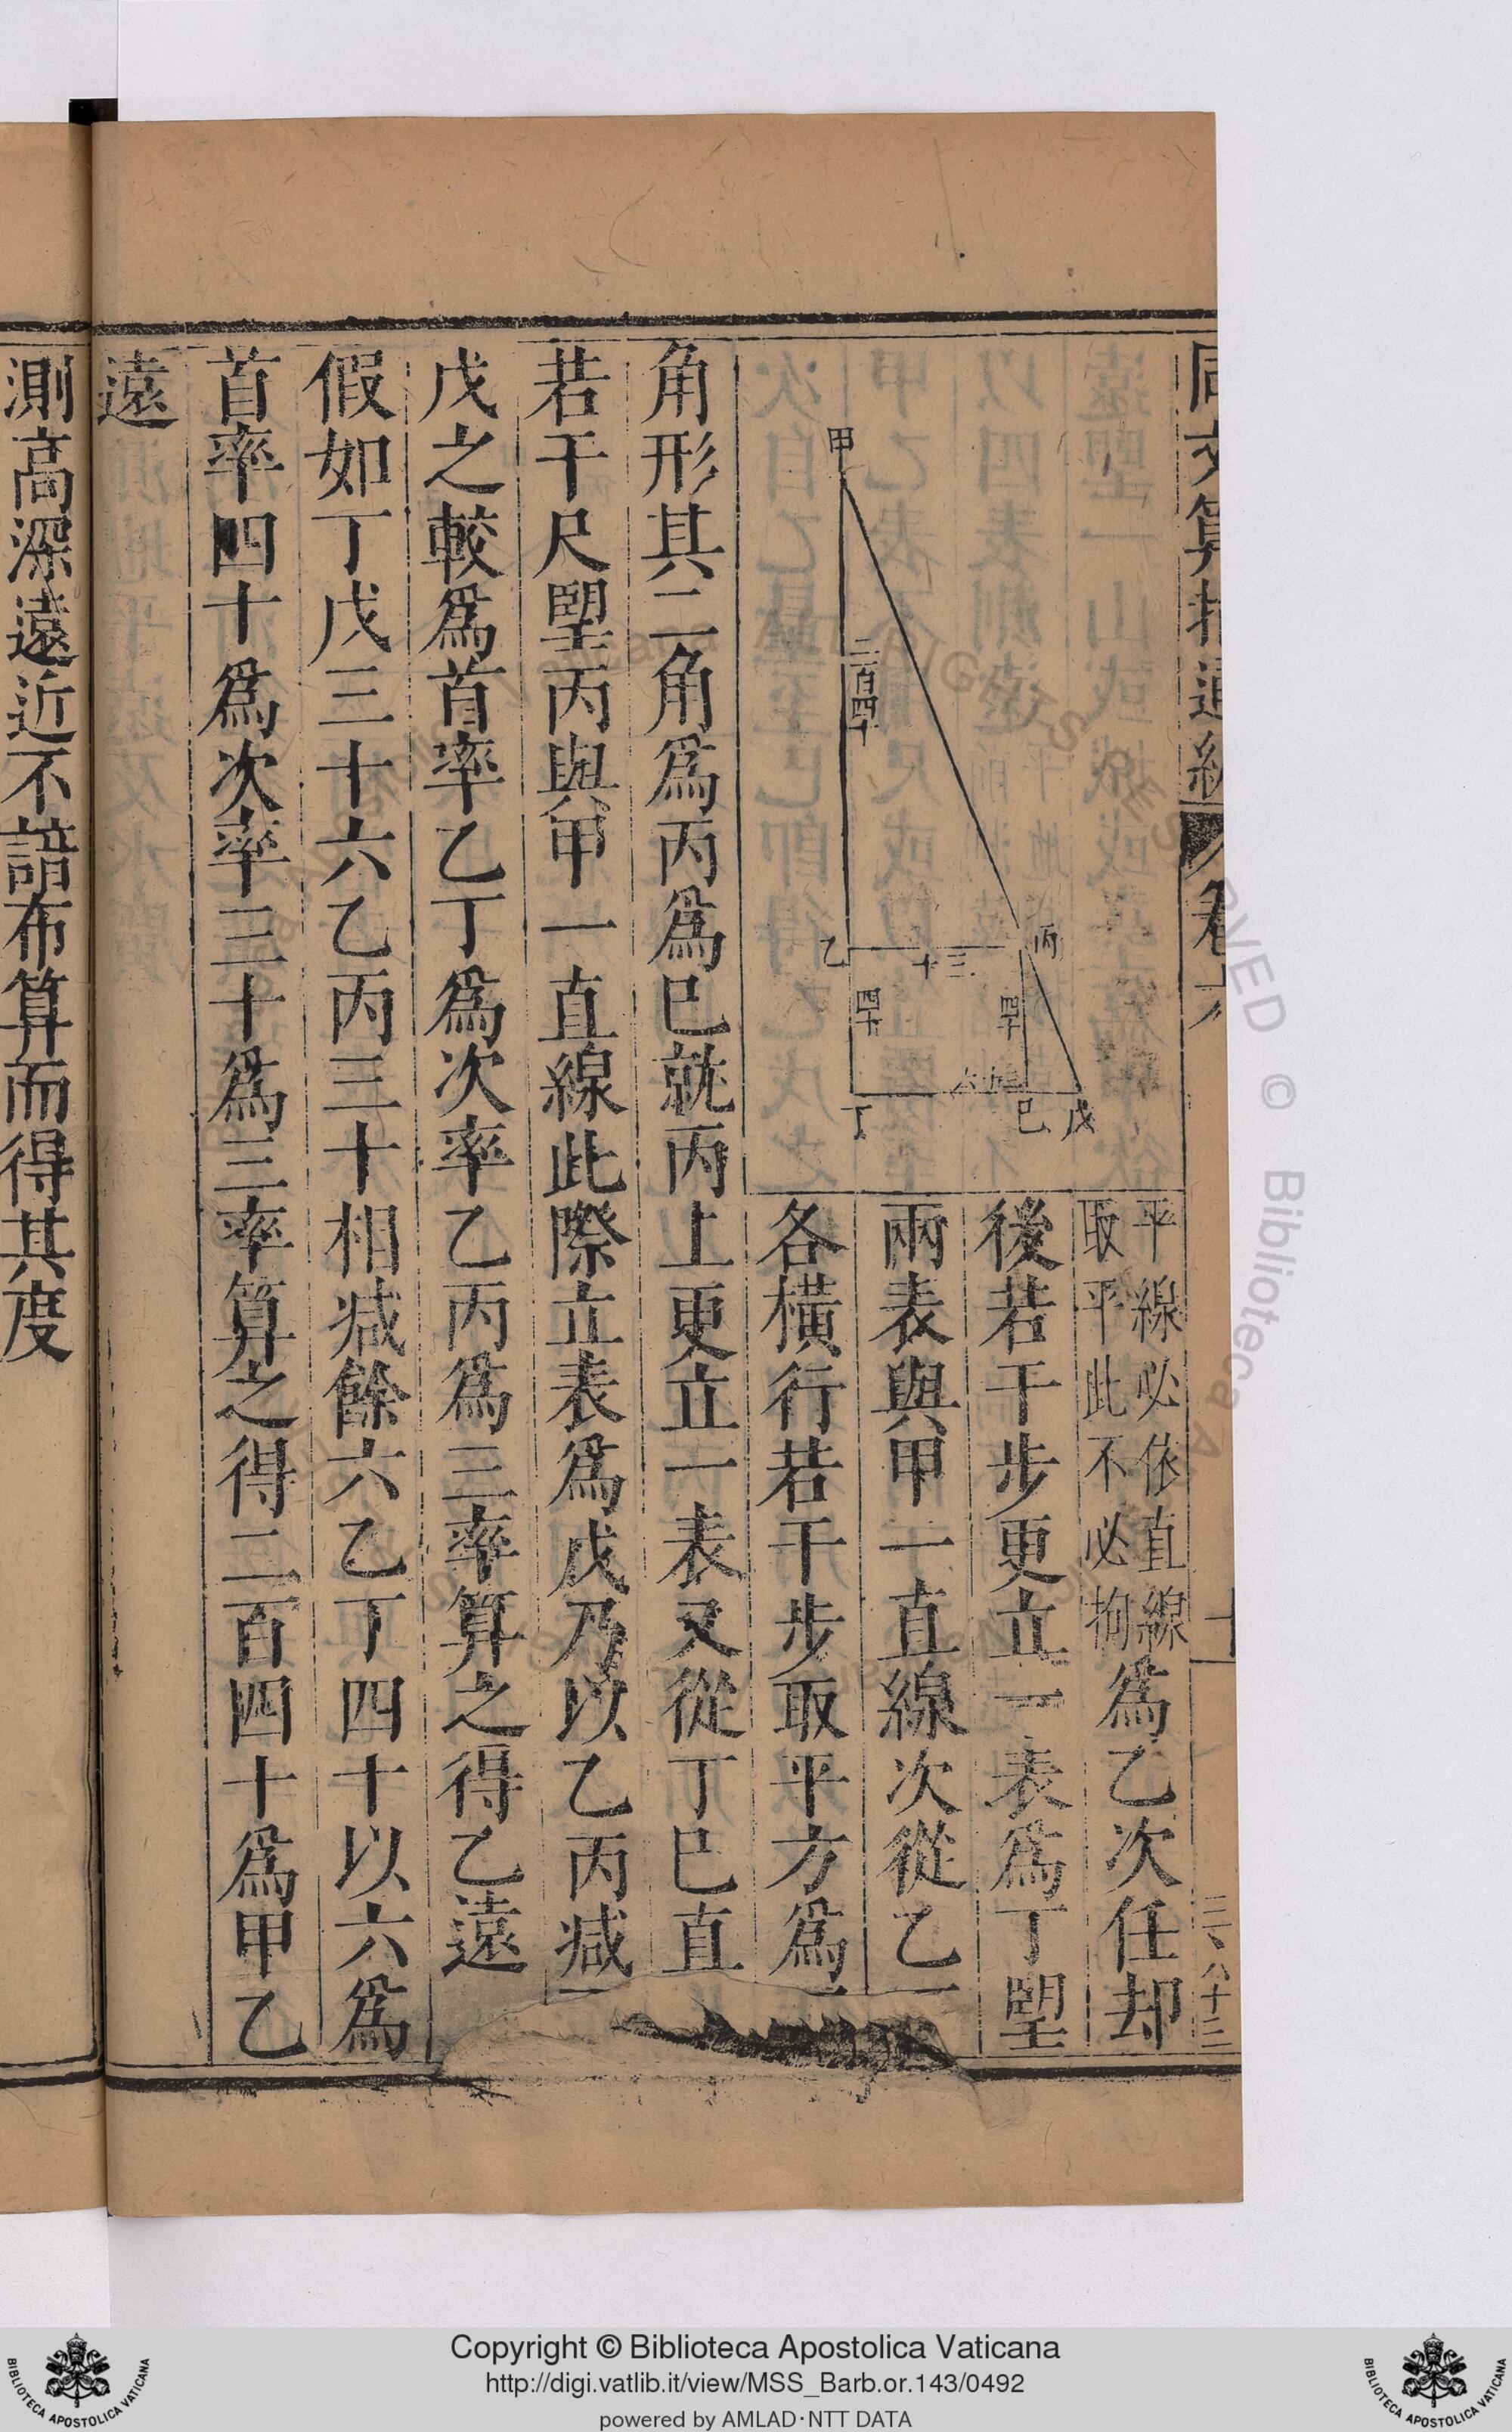 同文算指通編 卷六
十
平線必依直線
取平此不必拘
爲乙次任却
後若干步更立一表爲丁望
兩表與甲一直線次從乙
各橫行若干步取平方爲
甲
二百四十
丙
三十
乙
四十
四十
戊
巳
丁
角形其二角爲丙爲巳就丙上更立一表又從丁巳直
若干尺望丙與甲一直線此際立表爲戊乃以乙丙减
戊之較爲首率乙丁爲次率乙丙爲三率算之得乙遠
假如丁戊三十六乙丙三十相减餘六乙丁四十以六爲
首率四十爲次率三十爲三率算之得二百四十爲甲乙
遠
測高深遠近不諳布算而得其度
Copyright © Biblioteca Apostolica Vaticana
http://digi.vatlib.it/view/MSS_Barb.or.143/0492
powered by AMLAD·NTT DATA
BIBLIOTECA APOSTOLICA VATICANA
BIBLIOTECA APOSTOLICA VATICANA